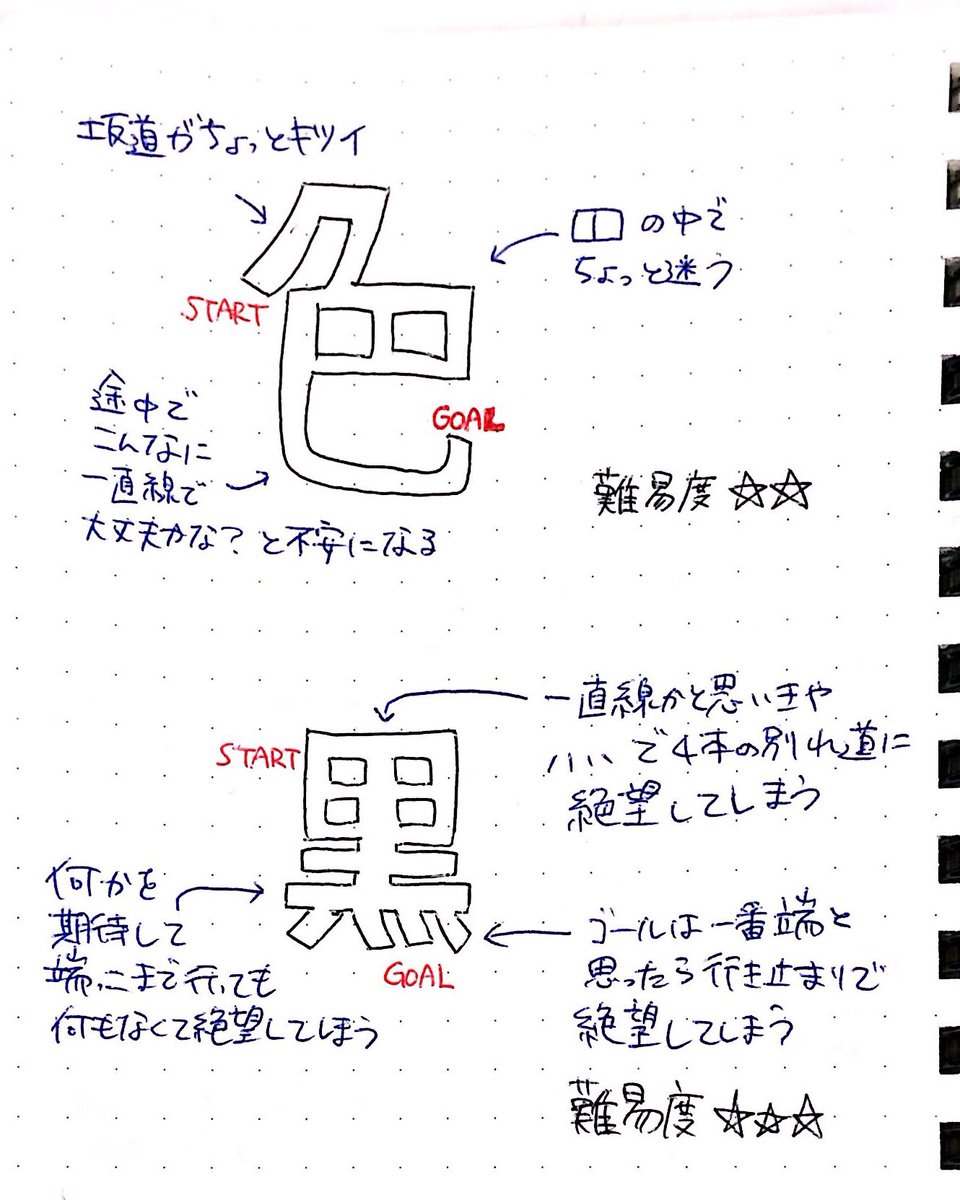 坂道がちょっとキツイ
START
⎅の中で
ちょっと迷う
途中で
こんなに
一直線で
大丈夫かな？と不安になる
GOAL
難易度☆☆
START
一直線かと思いきや
ハヽヽで4本の別れ道に
絶望してしまう
何かを
期待して
端っこまで行っても
何もなくて絶望してしまう
GOAL
ゴールは一番端と
思ったら行き止まりで
絶望してしまう
難易度☆☆☆